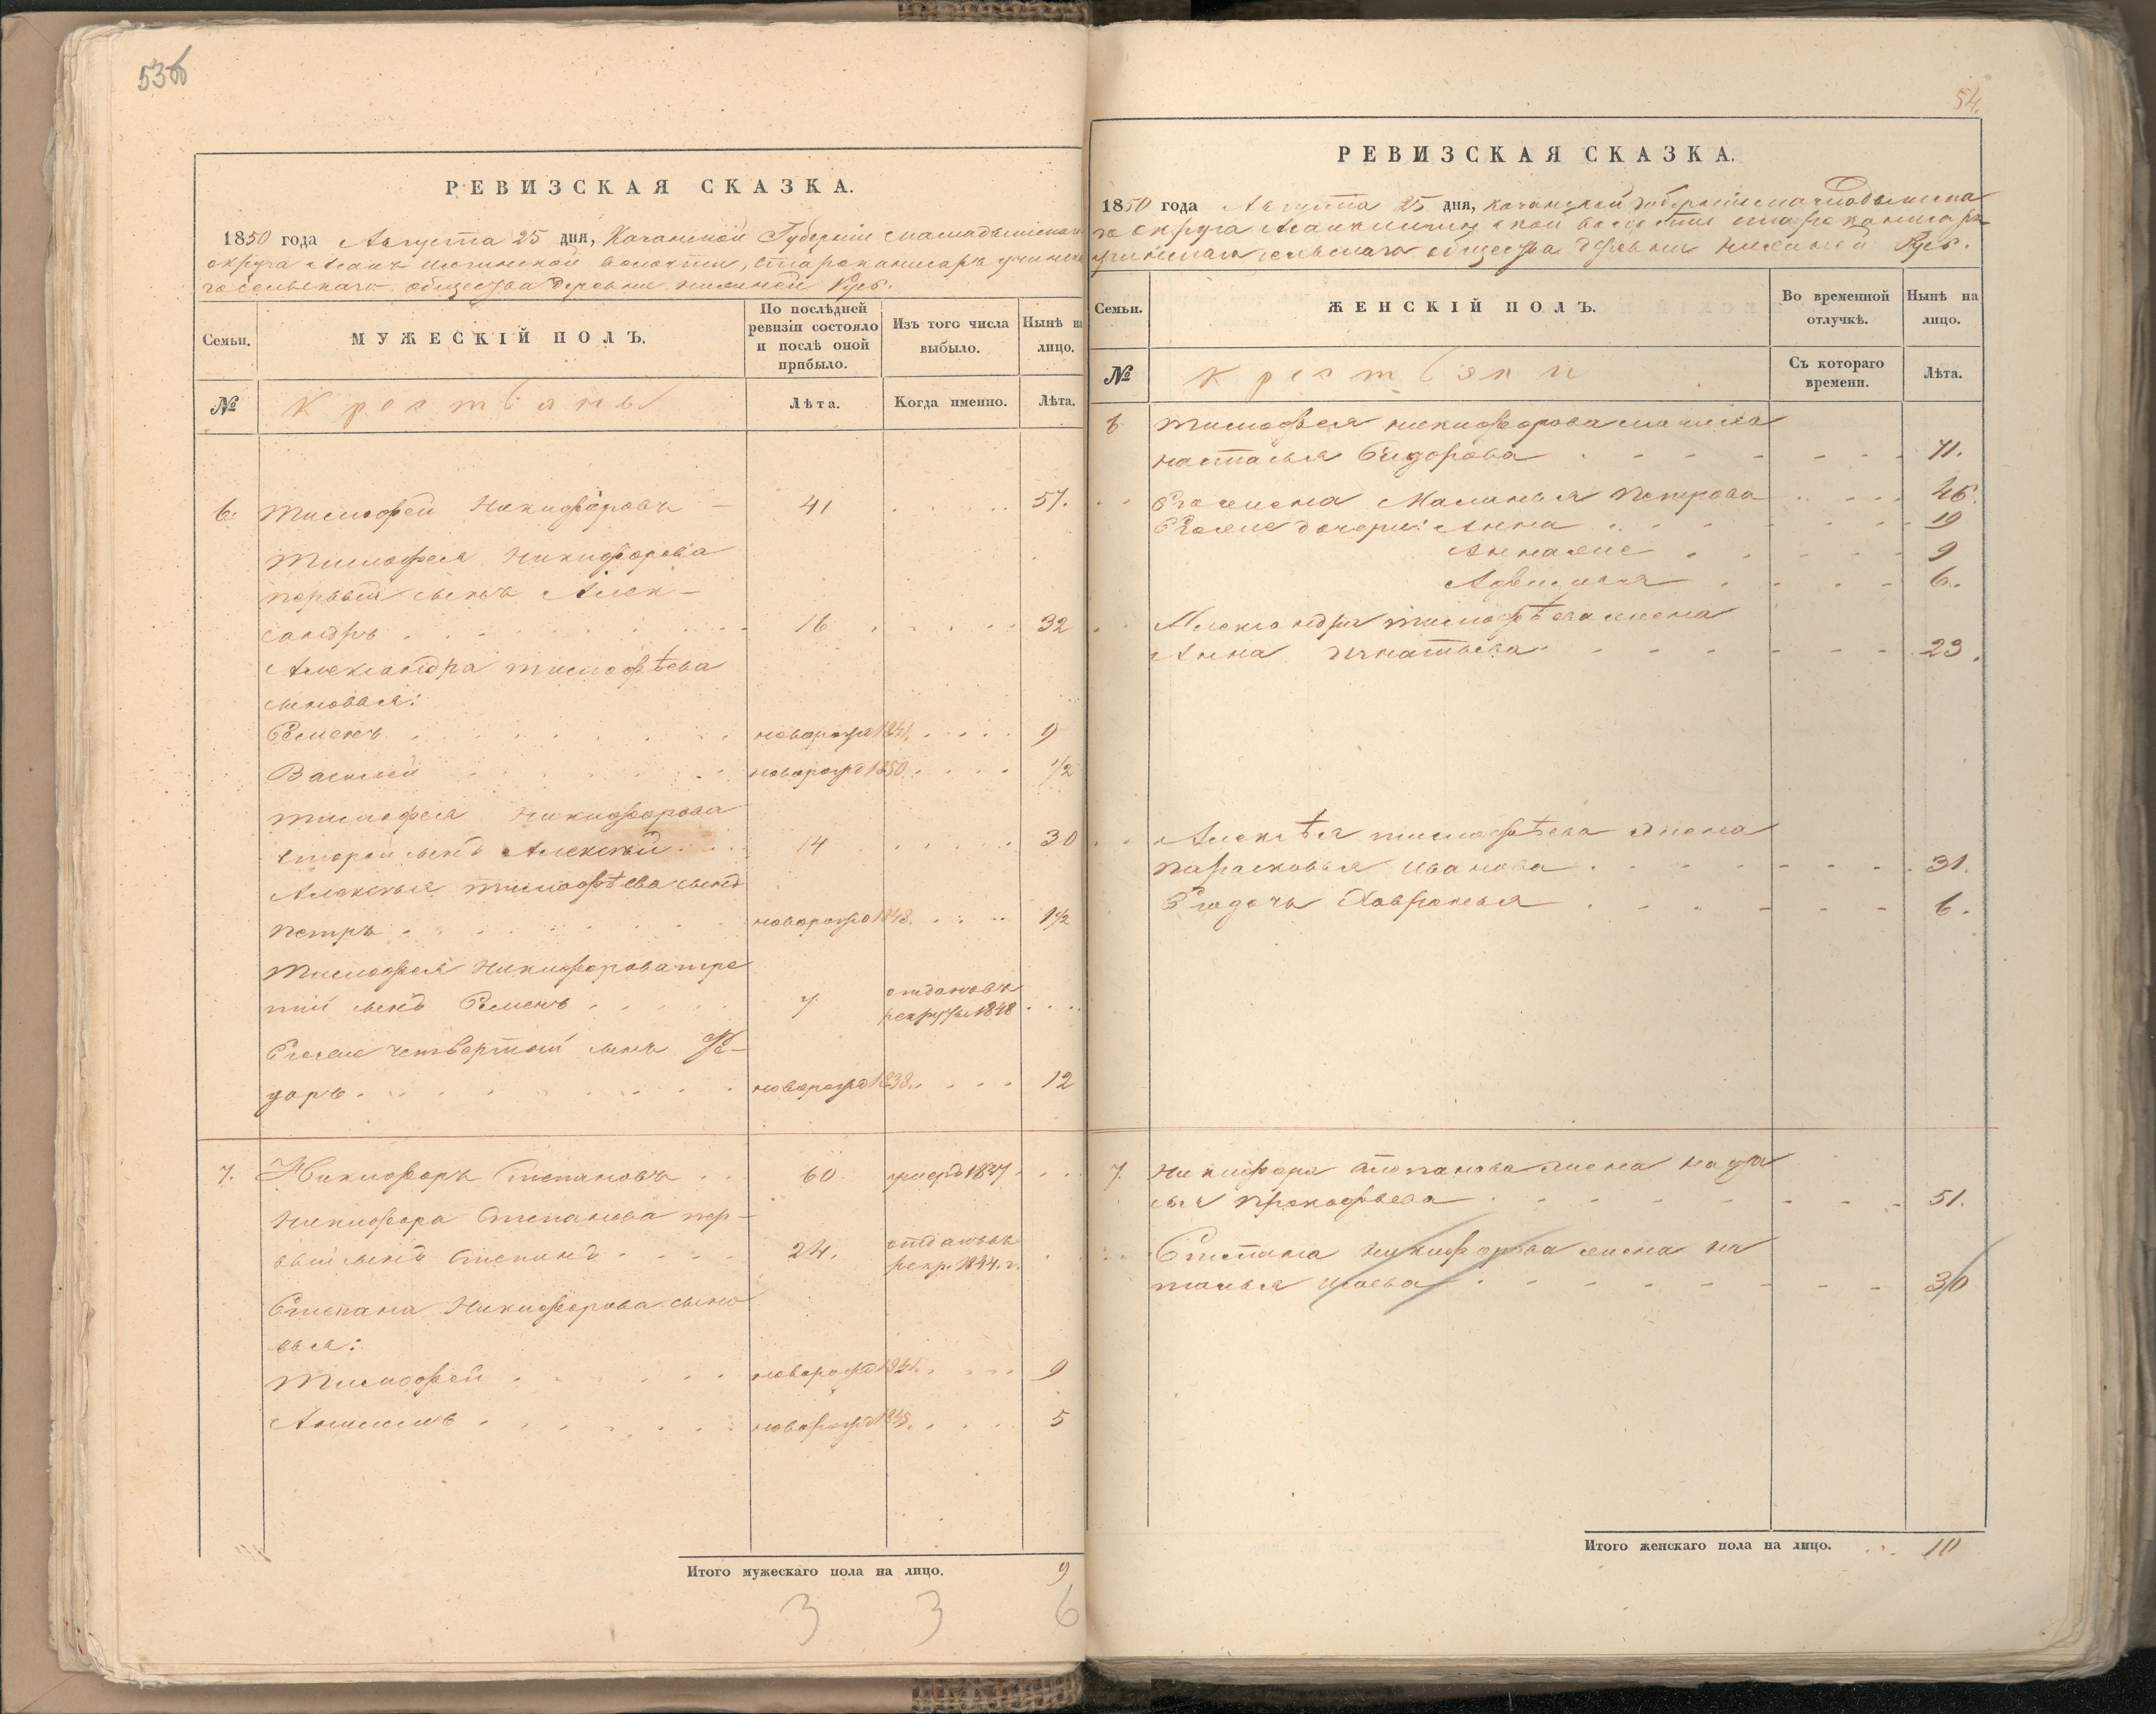 53б
РЕВИЗСКАЯ СКАЗКА.
1850 года Августа 25 дня, Казанской Губерніи Мамадышскаго
округа волости,
сельскаго общества деревни нижней Русь.
Семьи.
МУЖЕСКІЙ ПОЛЪ.
По послѣдней ревизіи состояло и послѣ оной прибыло.
Изъ того числа выбыло.
Нынѣ на лицо.
№
Крестьяны
Лѣта.
Когда именно.
Лѣта.
6. Тимофей Никифоровъ 41 57.
Тимофея Никифорова
первый сынъ Алек-
сандръ 16 32
Александра Тимофѣева
сыновья:
Семенъ новорожд 1841. 9
Василей новорожд 1850. 1/2
Тимофея Никифорова
второй сынъ Алексѣй 14 30
Алексѣя Тимофѣева сынъ
Петръ новорожд 1848. 1 1/2
Тимофея Никифорова тре
тій сынъ Семенъ 7 отданъ въ
рекруты 1848
Егоже четвертый сынъ Ѳе-
доръ новорожд 1838. 12
7. Никифоръ Степановъ 60 умеръ 1847
Никифора Степанова пер-
вый сынъ Степанъ 24. отданъ въ
рекр. 1844. г.
Степана Никифорова сыно
вья:
Тимофей новорожд 1841. 9
новорожд 1845. 5
Итого мужескаго пола на лицо. 9
3 3 6
54.
РЕВИЗСКАЯ СКАЗКА.
1850 года Августа 25 дня, Казанской Губерніи Мамадышска
го округа волости
сельскаго общества деревни нижней Русь.
Семьи.
ЖЕНСКІЙ ПОЛЪ.
Во временной отлучкѣ.
Нынѣ на лицо.
№
Крестьянки
Съ котораго времени.
Лѣта.
6 Тимофея Никифорова мачиха
Настасья Сидорова 71.
Его жена Маланья Петрова 46.
Егоже дочери: Анна 19
Анна же 9
6.
Александра Тимофѣева жена
Анна Игнатьева 29.
Алексѣя Тимофѣева жена
Парасковья Иванова 31.
Его дочь Хавронья 6.
7. Никифора Степанова жена
Прокофьева 51.
Степана Никифорова жена На
талья Исаева 30
Итого женскаго пола на лицо. 10